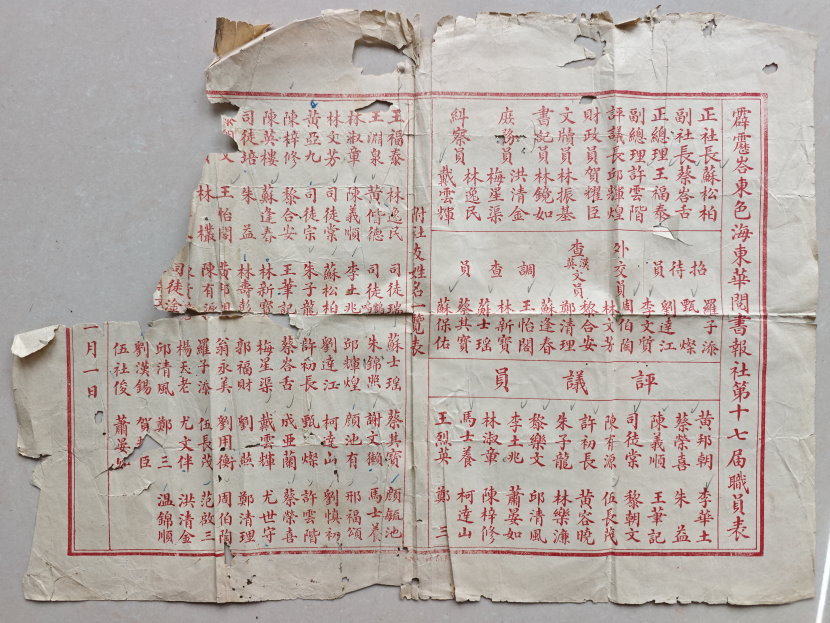 霹靂峇東色海東華閱書報社第十七届職員表
正社長蘇松柏
副社長蔡峇舌
正總理王福泰
副總理許雲階
評議長邱輝煌
財政員賀耀臣
文牘員林振基
書記員林鏡如
庶務員洪清金
梅星渠
糾察員林逸民
戴雲輝
招待員
羅子添
甄燦
劉達江
李文質
外交員周伯陶
林文芳
查漢英文員黎合安
鄭清理
調查員
蘇逢春
王怡閣
林新寶
蘇士瑶
蔡其寶
蘇保佑
評議員
黃邦朝 李華土
蔡榮喜 朱益
陳義順 王筆記
司徒棠 黎朝文
陳有源 伍長茂
許初長 黃容曉
朱子龍 林樂濂
黎樂文 邱清風
李土兆 蕭晏如
林淑章 陳梓修
馬士養 柯達山
王烈英 鄭三
附社友姓名一覽表
王福泰 林逸民 司徒瑞 蘇士瑶 蔡其寶 顏毓池
王淵泉 黃脩德 司徒 朱錦照 謝文獺 馬士養
林淑章 陳義順 李土兆 邱輝煌 顏池有 邢福頌
林文芳 司徒棠 蘇松柏 劉達江 柯達山 劉慎初
黃亞九 司徒宗 朱子龍 許初長 甄燦 許雲階
陳梓修 黎合安 王筆記 蔡峇舌 成亜蘭 蔡榮喜
陳英樓 蘇逢春 林新寶 梅星渠 戴雲輝 尤世守
司徒培 朱益 林壽彭 郭福財 劉燕 鄭清理
王怡閣 黃邦 翁永美 劉用衡 周伯陶
林 陳有 羅子添 伍長茂 范啟三
司徒 楊天老 尤文伴 洪清金
邱清風 鄭三 温錦順
劉漢錫 賀 臣
伍社俊 蕭晏
一月一日